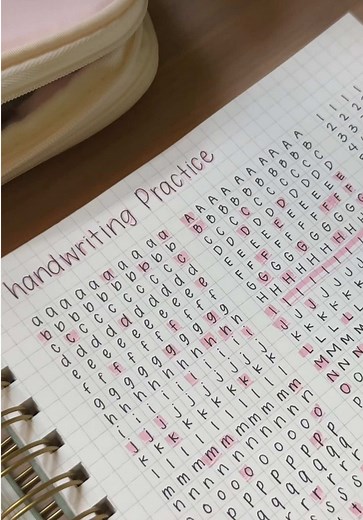 handwriting Practice
a a a a a a a a a a
b b b b b b b b b b
c c c c c c c c c c
d d d d d d d d d d
e e e e e e e e e e
f f f f f f f f f f
g g g g g g g g g g
h h h h h h h h h h
i i i i i i i i i i
j j j j j j j j j j
k k k k k k k k k k
l l l l l l l l l l
m m m m m m m m m m
n n n n n n n n n n
o o o o o o o o
p p p p p p p
q q q q q q
r r r r
s s s
A A A A A A A A A A
B B B B B B B B B B
C C C C C C C C C C
D D D D D D D D D D
E E E E E E E E E E
F F F F F F F F F F
G G G G G G G G G
H H H H H H H H H
I I I I I I I I
J J J J J J J
K K K K K K
L L L L L
M M M M
N N N
O O
1 1 1 1
2 2 2 2
3 3 3
4